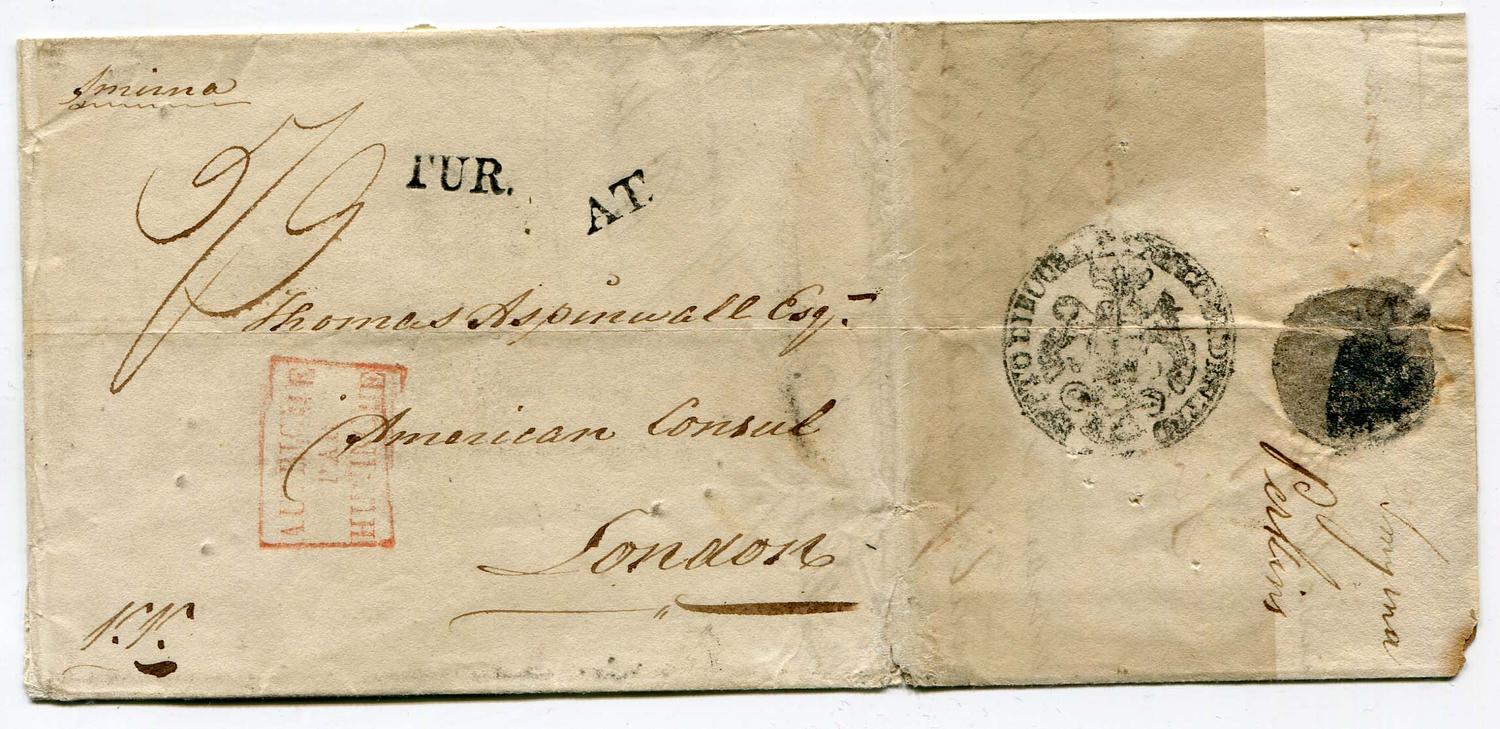 Smirna
2/9
TUR.
AT.
Thomas Aspinwall Esqr.
American Consul
London
AUTRICHE
PAR
HUNINGUE
p.p.
Smyrna
Perkins